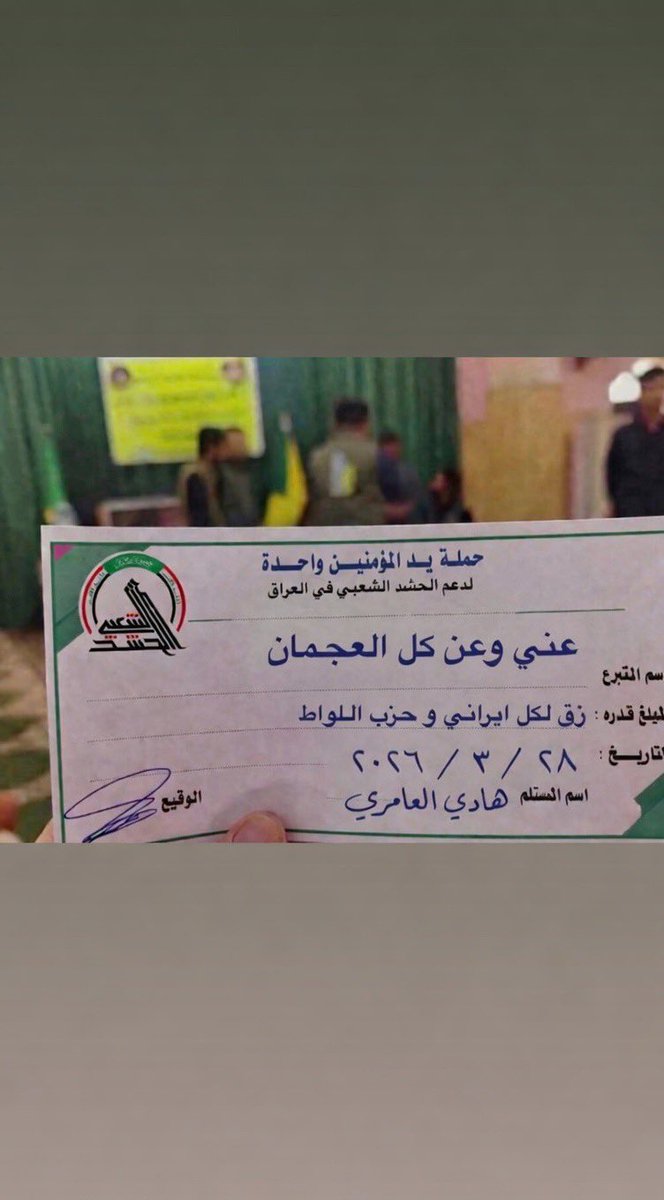 حملة يد المؤمنين واحدة
لدعم الحشد الشعبي في العراق
الحشد الشعبي
عني وعن كل العجمان
سم المتبرع
لمبلغ قدره : زق لكل ايراني و حزب اللواط
لتاريخ : ٢٨ / ٣ / ٢٠٢٦
اسم المستلم هادي العامري
الوقيع